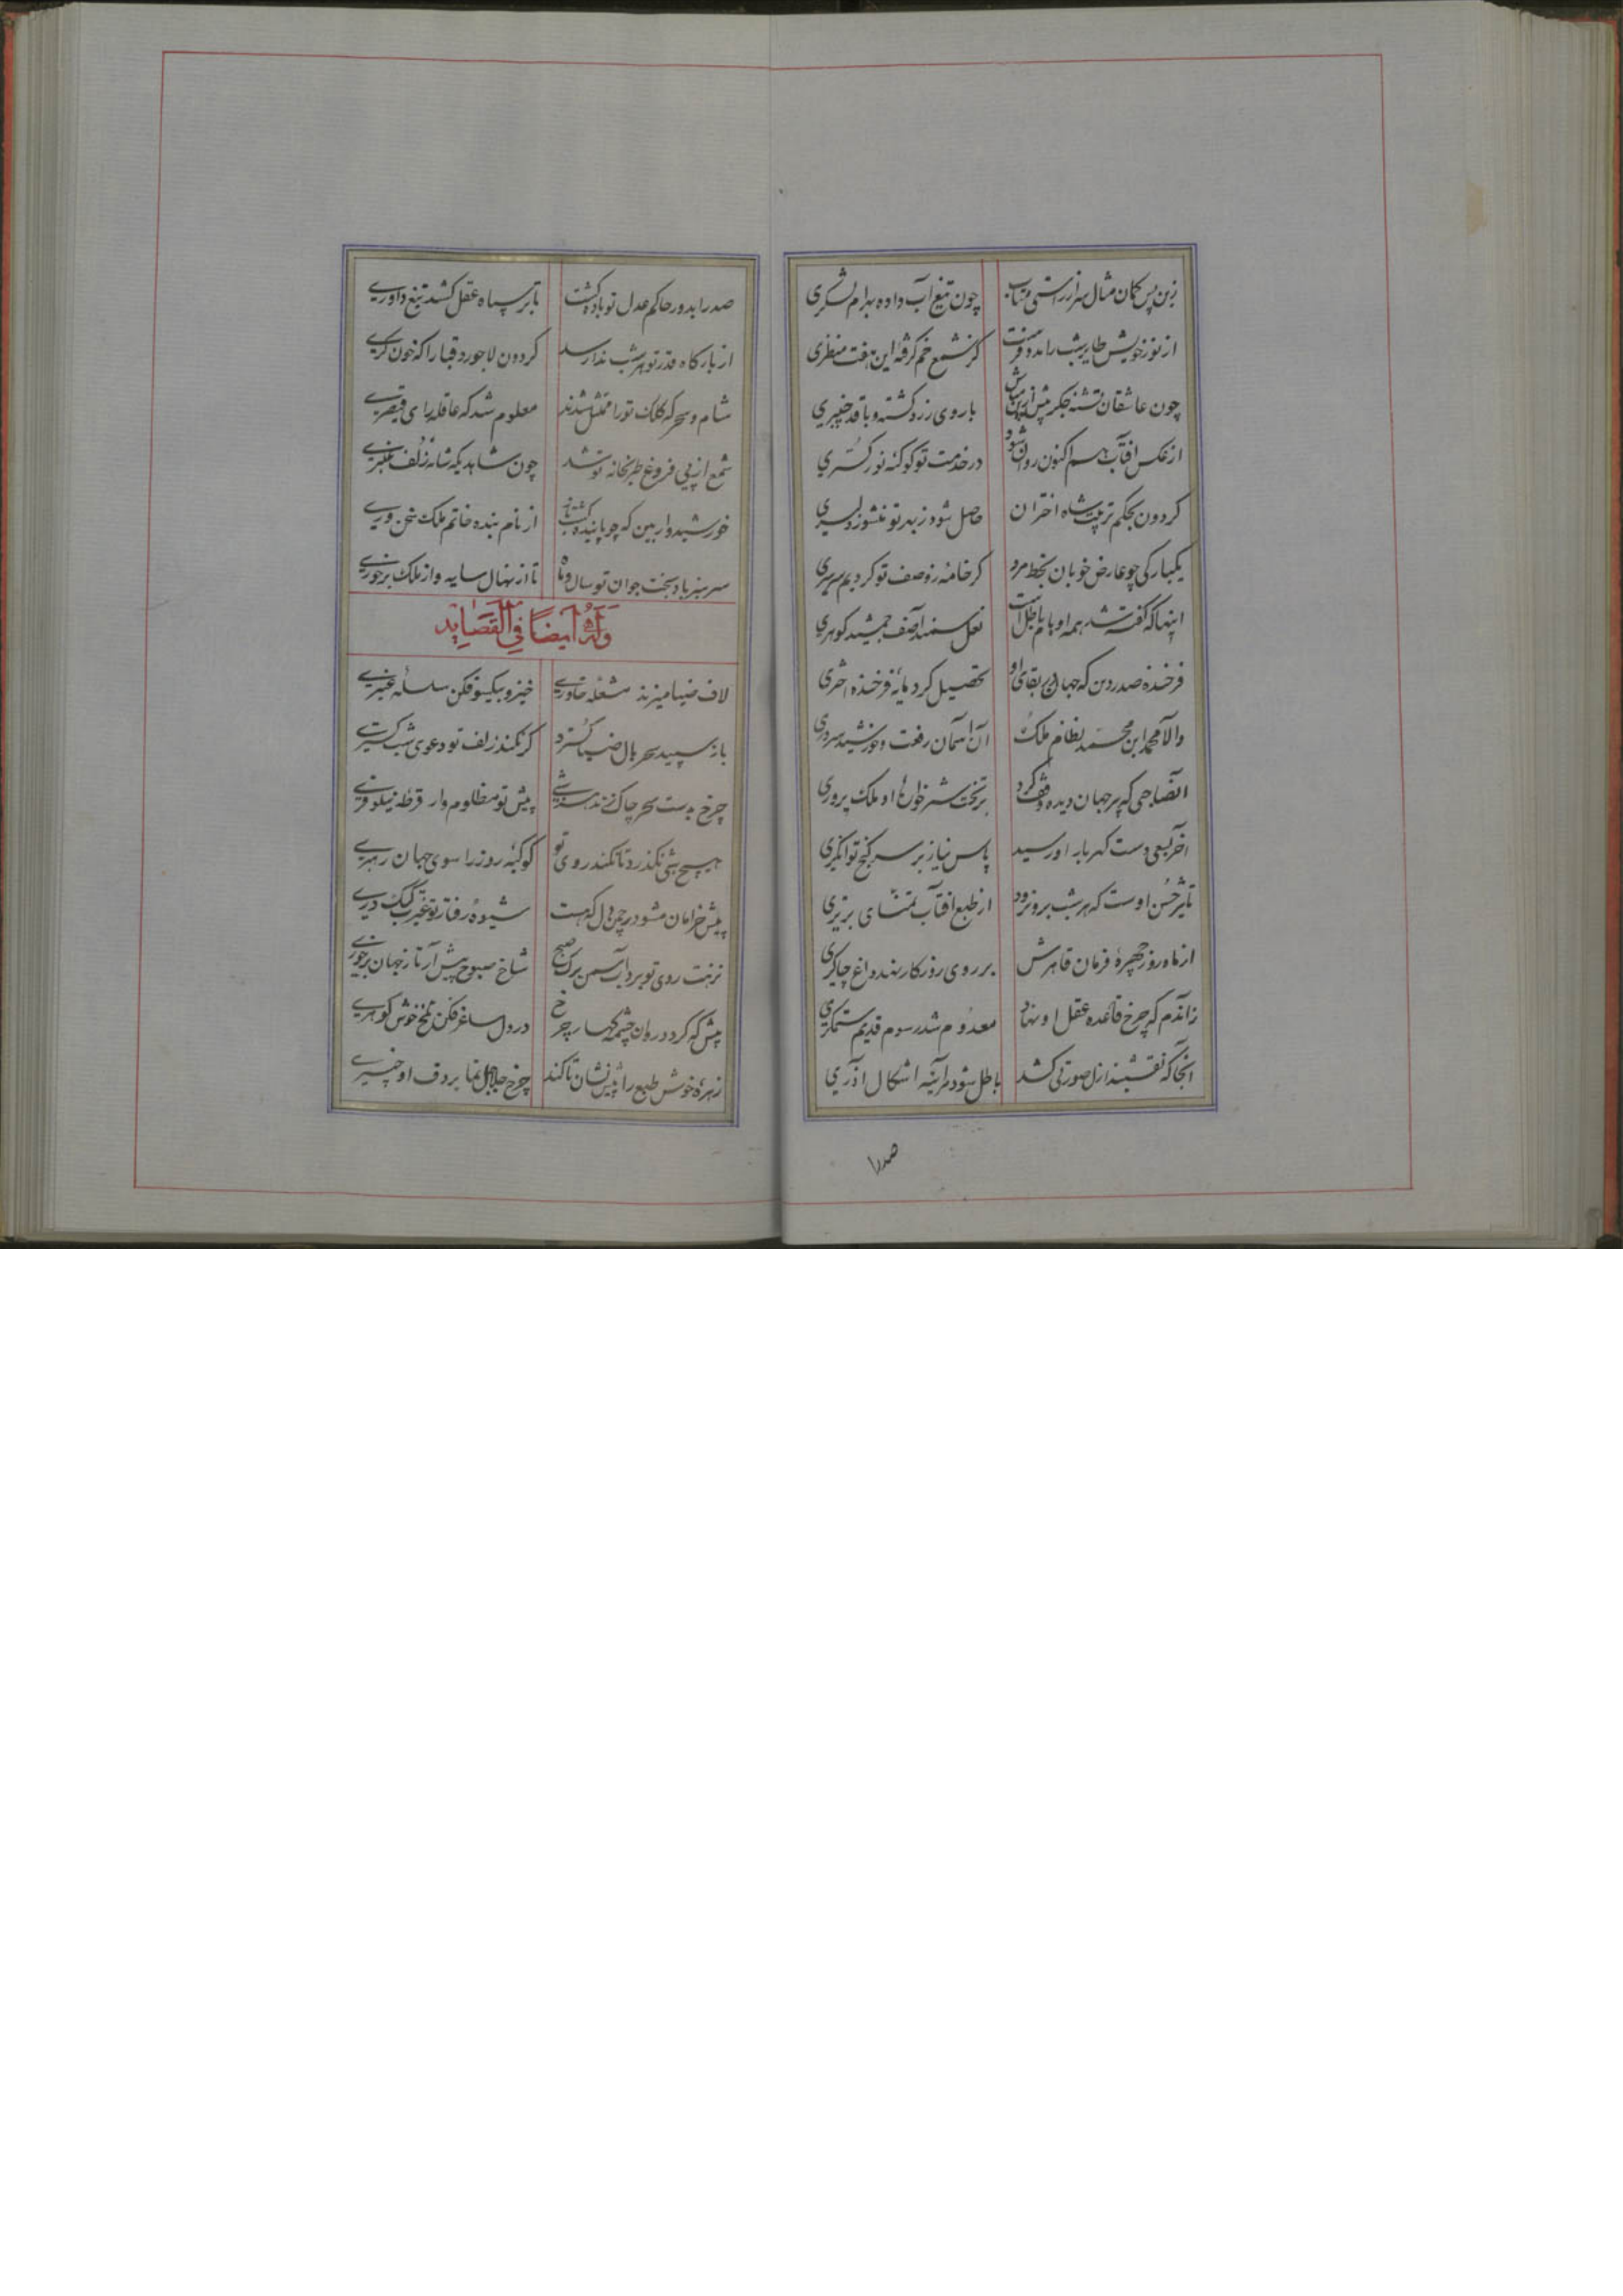 زین پس کمان مثال سر از راستی متاب چون تیغ آب داده بهرام لشکری
از نوز خویش طایر شب را مدد فرست کز شمع خم گرفته این هفت منظری
چون عاشقان تشنه جگر پیش ازین مباش با روی زرد گشته و با قد چنبری
از عکس افتاب هم اکنون روان شود در خدمت تو کوکبه نور کستری
کردون بحکم تربیت شاه اختران حاصل شود زبهر تو منشور دلبری
یکبارکی چو عارض خوبان بخط مرو کر خامه ز وصف تو کردیم سرسری
اینها که گفته شد همه اوهام باطل است نعل سمند آصف جمشید کوهری
فرخنده صدر دین که جهان بر بقای او تحصیل کرد مایه فرخنده اختری
والا محمد ابن محمد نظام ملک آن اسمان رفعت و خورشید سروری
انصاحبی که بر جهان دیده وقف کرد بر تخت شرخوان او ملک پروری
اخر بسعی دست کهربار او رسید پاس نیاز بر سر کنج توانکری
تاثیر حسن اوست که هر شب برون رود از طبع افتاب تمنای برتری
از ماه روز چهره فرمان قاهرش بر روی روزکار نهد داغ چاکری
زاندم که چرخ قاعده عقل او نهاد معدوم شد رسوم قدیم ستمکری
انجا که نقشبند ازل صورتی کشد باطل شود هرآینه اشکال اذری
صدرا
صدرا بدور حاکم عدل تو باد کشت تا بر سپاه عقل کشد تیغ داوری
از بارکاه قدر تو هر شب ندا رسد کردون لاجورد قبا را که خون کری
شام و سحر که کلک تو را ممتثل شدند معلوم شد که عاقله رای قیصری
شمع از پی فروغ طربخانه تو شد چون شاهدیکه شانه زلف عنبری
خورشیدوار بین که چو پاینده کشت باز از نام بنده خاتم ملک سخن وری
سرسبز باد بخت جوان تو سال و ماه تا از نهال سایه و از ملک برخوری
وله ایضا فی القصاید
لاف ضیا میزند مشغله خاوری خیز و بیکسو فکن سلسله عنبری
باز سپید سحر بال ضیا کسترد کر نکند زلف تو دعوی شب کستری
چرخ بدست سحر چاک زند هر شبی پیش تو مظلوم وار قرطه نیلوفری
هیچ شبی نکذرد تا نکند روی تو کوکبه روز را سوی جهان رهبری
پیش خرامان مشو در چمن دل که هست شیوه رفتار تو غیرت کبک دری
نزهت روی تو برد آب سمن برک صبح شاخ صبوح پیش آر تا ز جهان برخوری
پیش که کردد روان چشمه کهسار چرخ در دل ساغر فکن تلخ خوش کوهری
زهره خوش طبع را پیش نشان تا کند چرخ جلاجل نما بر دف او چنبری